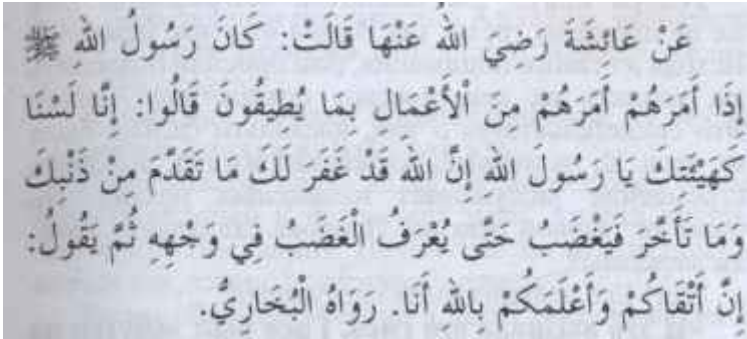 عَنْ عَائِشَةَ رَضِيَ اللهُ عَنْهَا قَالَتْ: كَانَ رَسُولُ اللهِ ﷺ
إِذَا أَمَرَهُمْ أَمَرَهُمْ مِنَ الْأَعْمَالِ بِمَا يُطِيقُونَ قَالُوا: إِنَّا لَسْنَا
كَهَيْئَتِكَ يَا رَسُولَ اللهِ إِنَّ اللهَ قَدْ غَفَرَ لَكَ مَا تَقَدَّمَ مِنْ ذَنْبِكَ
وَمَا تَأَخَّرَ فَيَغْضَبُ حَتَّى يُعْرَفُ الْغَضَبُ فِي وَجْهِهِ ثُمَّ يَقُولُ:
إِنَّ أَتْقَاكُمْ وَأَعْلَمَكُمْ بِاللهِ أَنَا. رَوَاهُ الْبُخَارِيُّ.